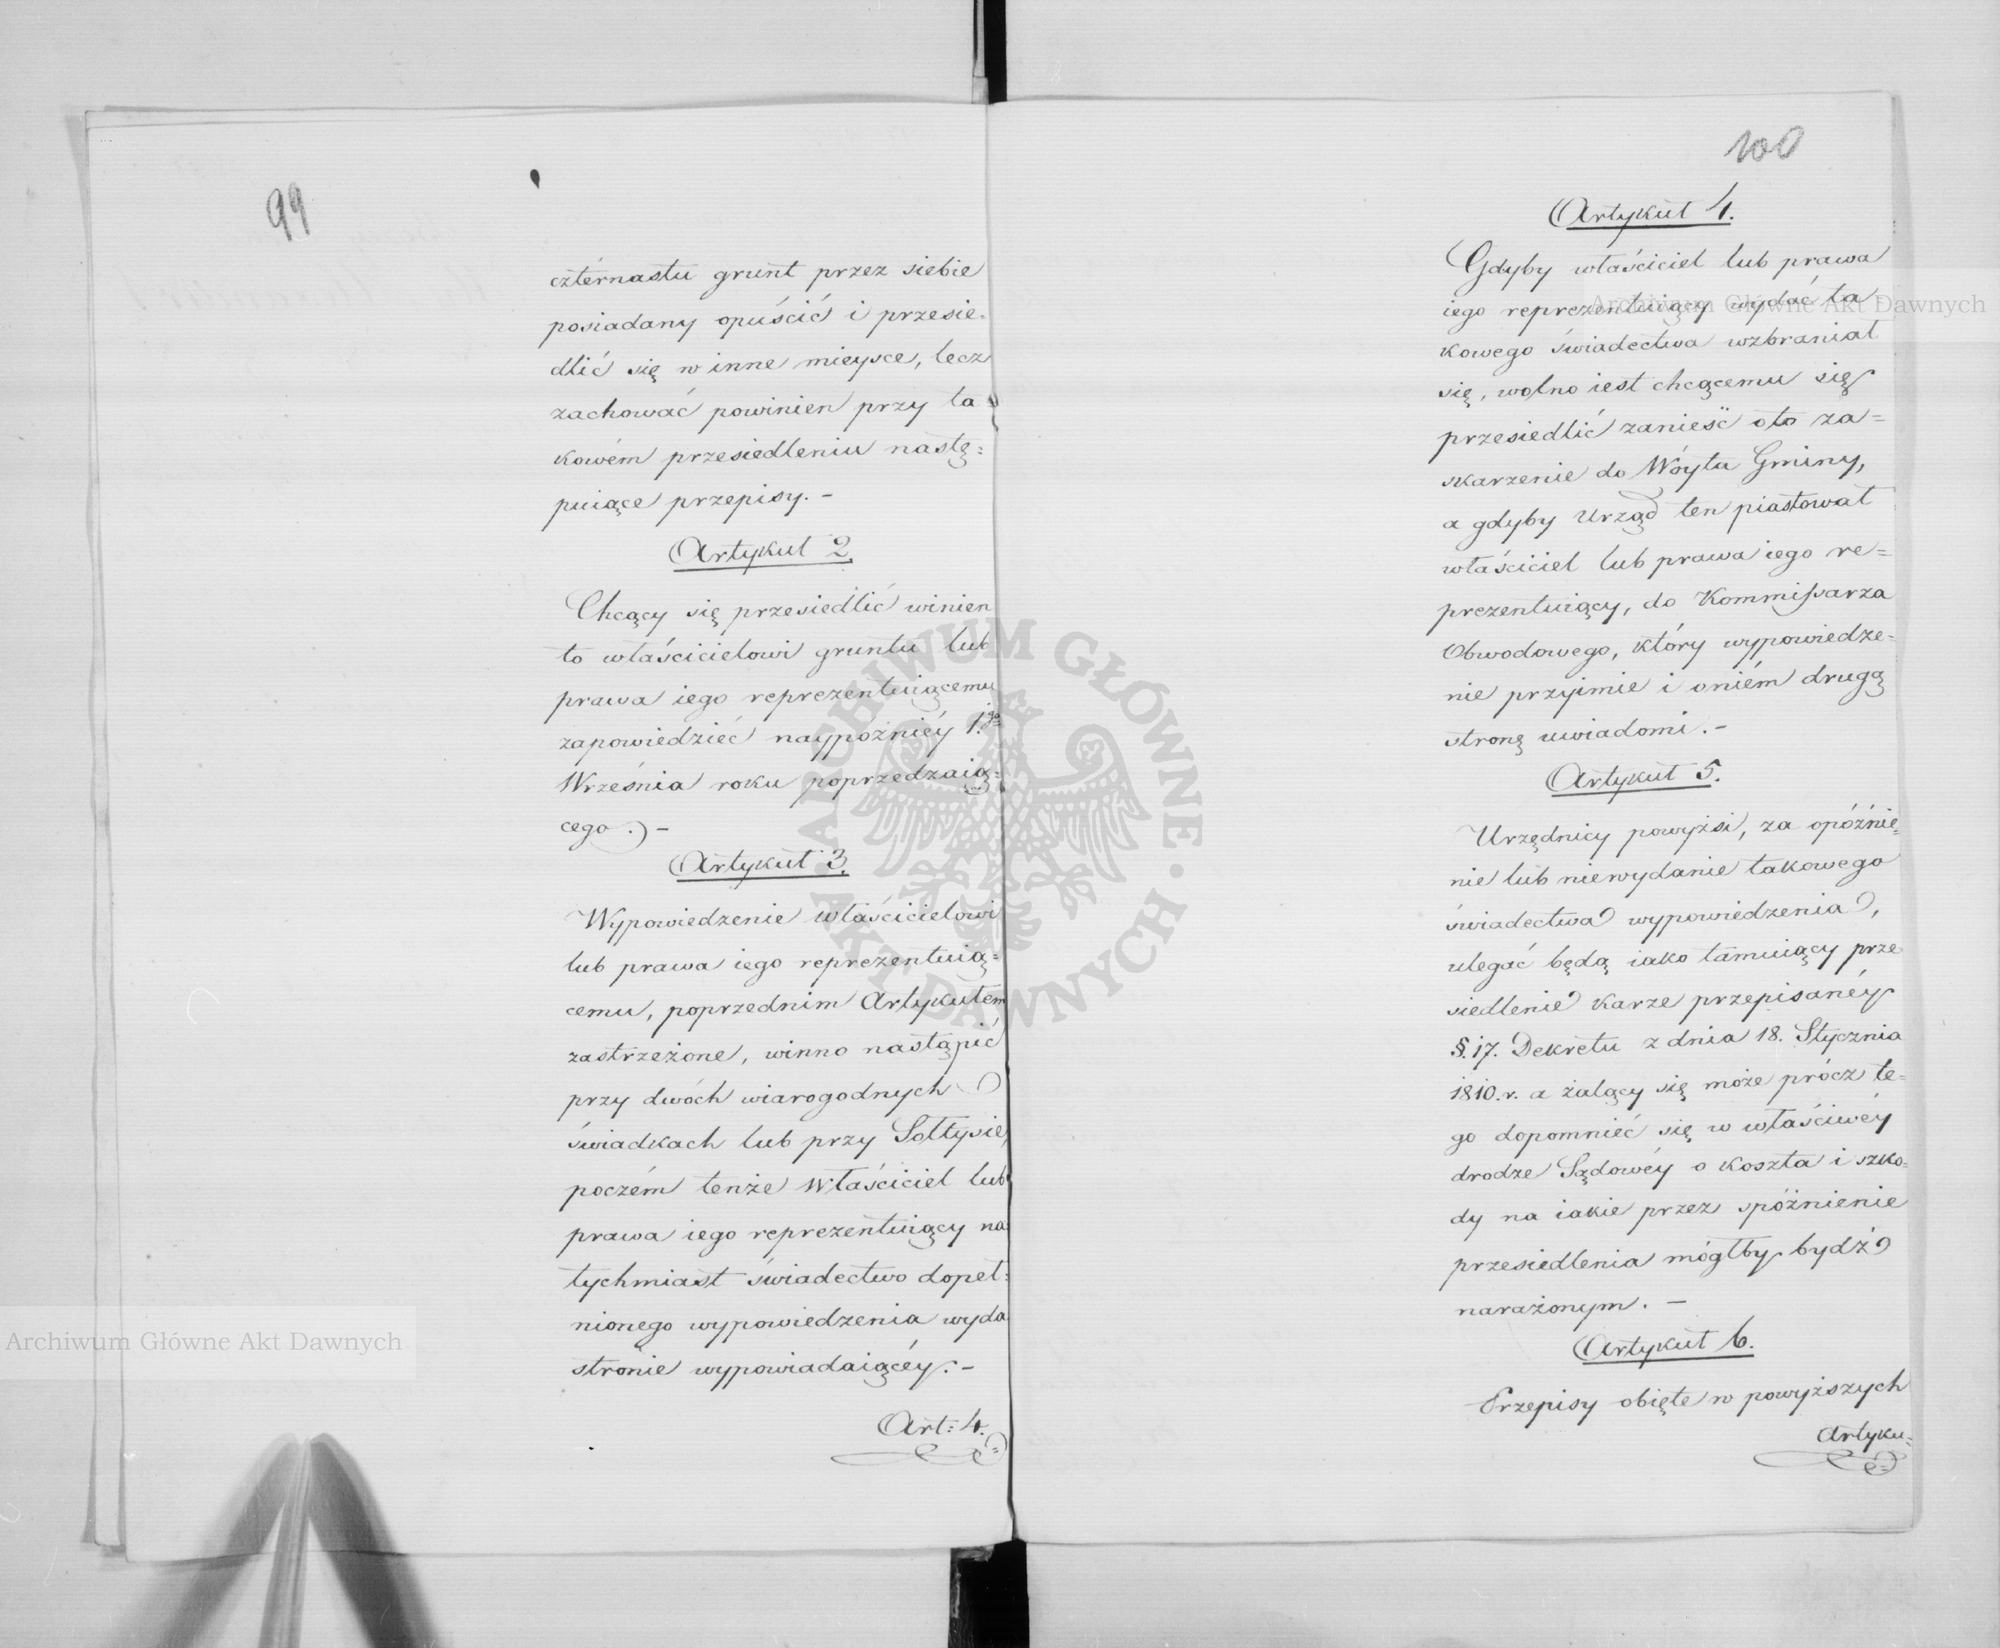 99
cztérnastu grunt przez siebie
posiadany opuścić i przesie-
dlić się w inne mieysce, lecz
zachować powinien przy ta
kowém przesiedleniu nastę=
puiące przepisy. -
Artykuł 2.
Chcący się przesiedlić winien
to właścicielowi gruntu lub
prawa iego reprezentuiącemu
zapowiedzieć naypóźniéy 1.go
Września roku poprzedzaią=
cego. -
Artykuł 3.
Wypowiedzenie właścicielowi
lub prawa iego reprezentuią=
cemu, poprzednim Artykułem
zastrzeżone, winno nastąpić
przy dwóch wiarogodnych
świadkach lub przy Sołtysie,
poczém tenże Właściciel lub
prawa iego reprezentuiący na
tychmiast świadectwo dopeł=
nionego wypowiedzenia wyda
stronie wypowiadaiącéy. -
Art: 4.
100
Artykuł 4.
Gdyby właściciel lub prawa
iego reprezentuiący wydać ta
kowego świadectwa wzbraniał
się, wolno iest chcącemu się
przesiedlić zanieść oto za=
skarzenie do Wóyta Gminy,
a gdyby Urząd ten piastował
właściciel lub prawa iego re=
prezentuiący, do Kommissarza
Obwodowego, który wypowiedze-
nie przyimie i oniém drugą
stronę uwiadomi. -
Artykuł 5.
Urzędnicy powyżsi, za opóźnie=
nie lub niewydanie takowego
świadectwa wypowiedzenia,
ulegać będą iako tamuiący prze
siedlenie karze przepisanéy
§. 17. Dekretu z dnia 18. Stycznia
1810. r. a żalący się może prócz te-
go dopomnieć się w właściwéy
drodze Sądowéy o koszta i szko-
dy na iakie przez spóźnienie
przesiedlenia mógłby bydź
narażonym. -
Artykuł 6.
Przepisy obięte w powyższych
Artyku=
Archiwum Główne Akt Dawnych
Archiwum Główne Akt Dawnych
ARCHIWUM GŁÓWNE AKT DAWNYCH